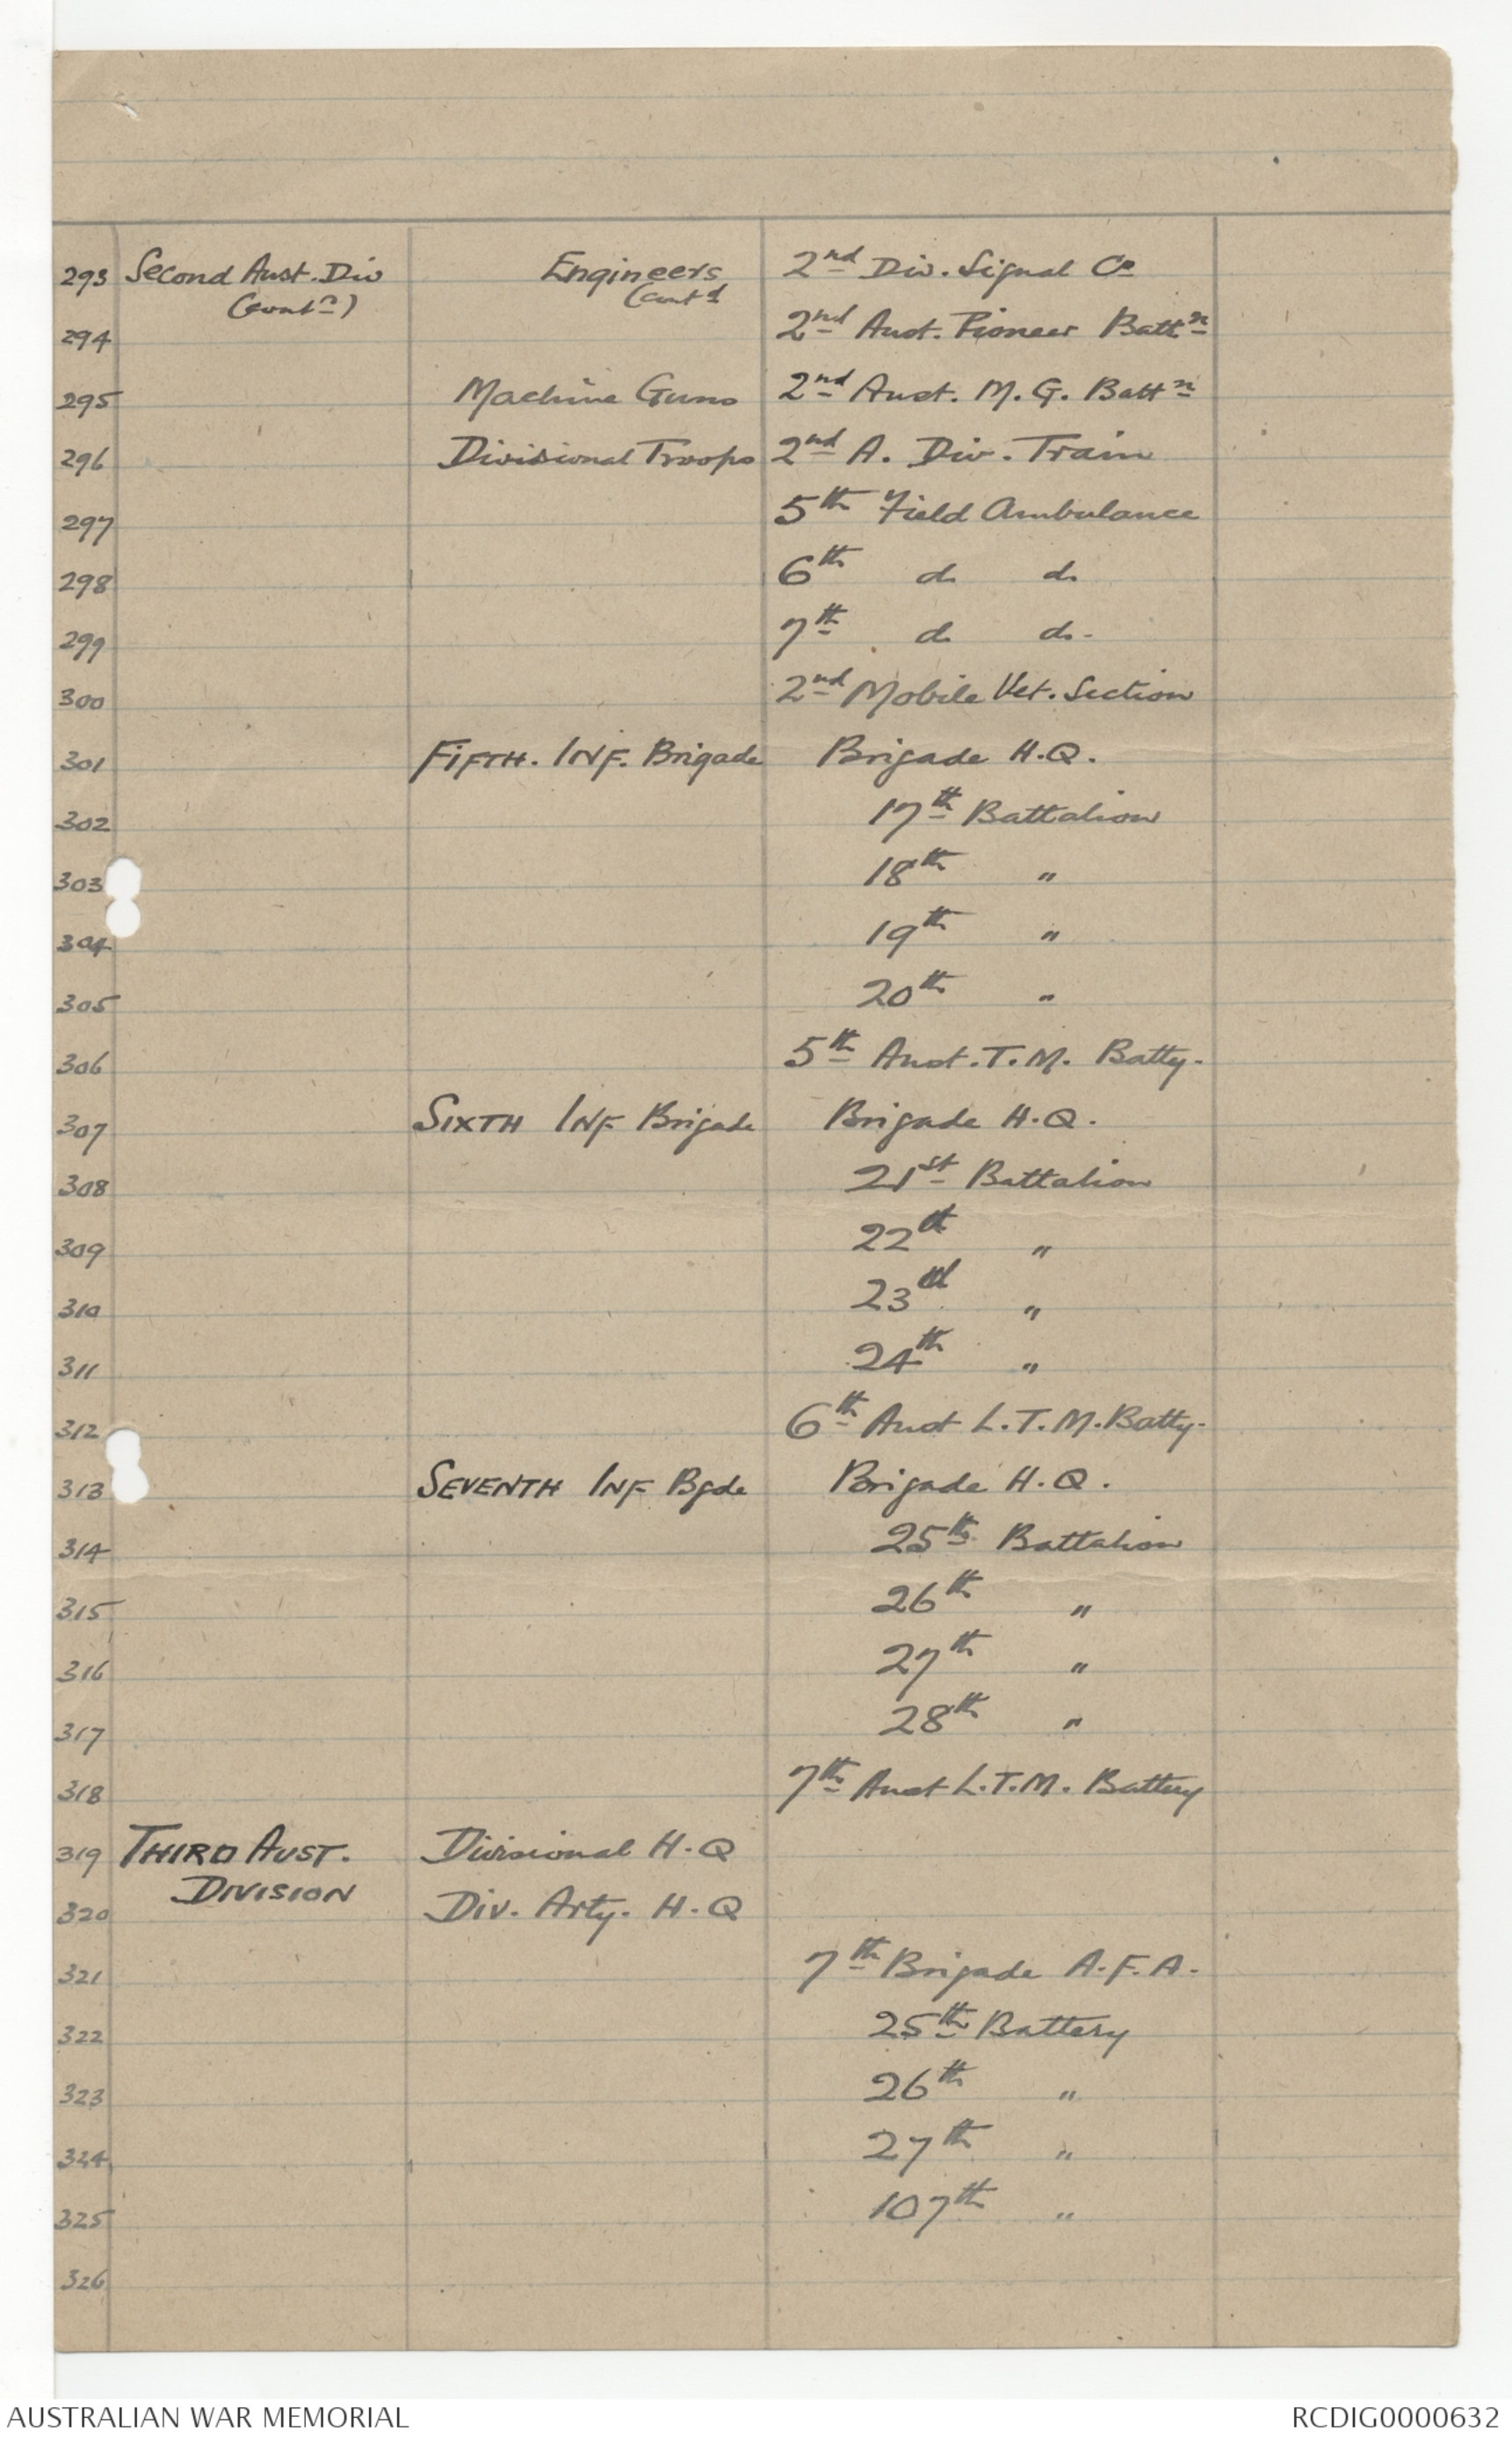 293 Second Aust. Div Engineers 2nd Div. Signal Co
(Contn) (Contd
294 2nd Aust. Pioneer Battn
295 Machine Guns 2nd Aust. M. G. Battn
296 Divisional Troops 2nd A. Div. Train
297 5th Field Ambulance
298 6th do do
299 7th do do.
300 2nd Mobile Vet. Section
301 FIFTH. INF. Brigade Brigade H.Q.
302 17th Battalion
303 18th "
304 19th "
305 20th "
306 5th Aust. T. M. Batty.
307 SIXTH INF Brigade Brigade H.Q.
308 21st Battalion
309 22nd "
310 23rd "
311 24th "
312 6th Aust L. T. M. Batty.
313 SEVENTH INF Bgde Brigade H.Q.
314 25th Battalion
315 26th "
316 27th "
317 28th "
318 7th Aust L.T.M. Battery
319 THIRD AUST. Divisional H.Q
DIVISION
320 Div. Arty. H.Q
321 7th Brigade A.F.A.
322 25th Battery
323 26th "
324 27th "
325 107th "
326
AUSTRALIAN WAR MEMORIAL RCDIG0000632